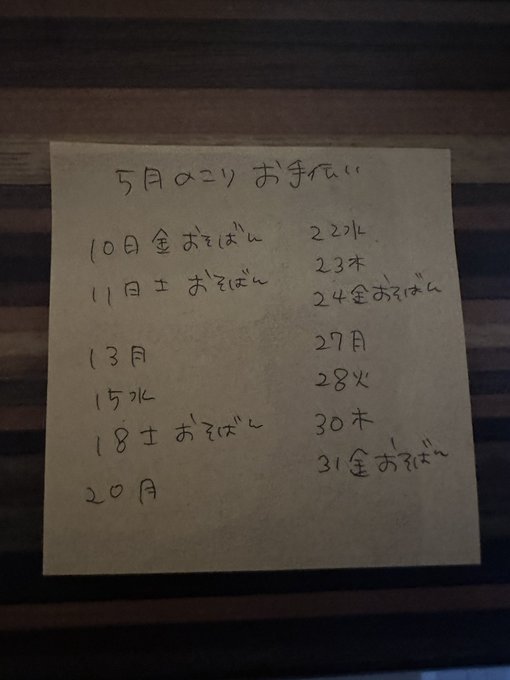 5月のこり お手伝い
10日金 おそばん
11日土 おそばん
13月
15水
18土 おそばん
20月
22水
23木
24金 おそばん
27月
28火
30木
31金 おそばん